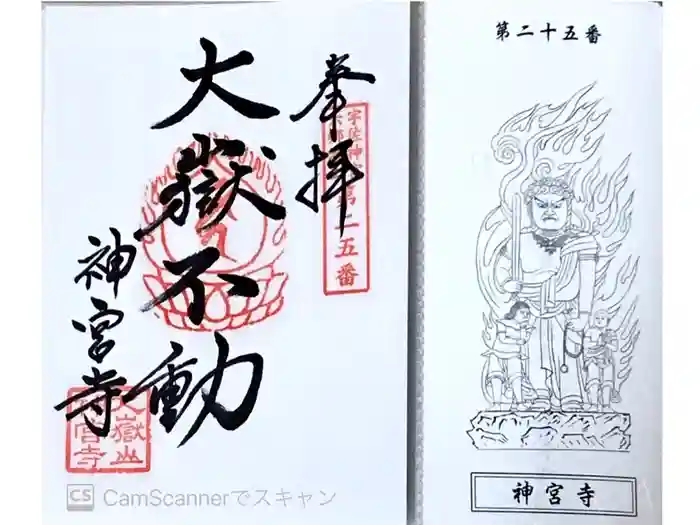 奉拝
大嶽不動
神宮寺
第二五番
大嶽山
神宮寺
CS CamScannerでスキャン
第二十五番
神宮寺